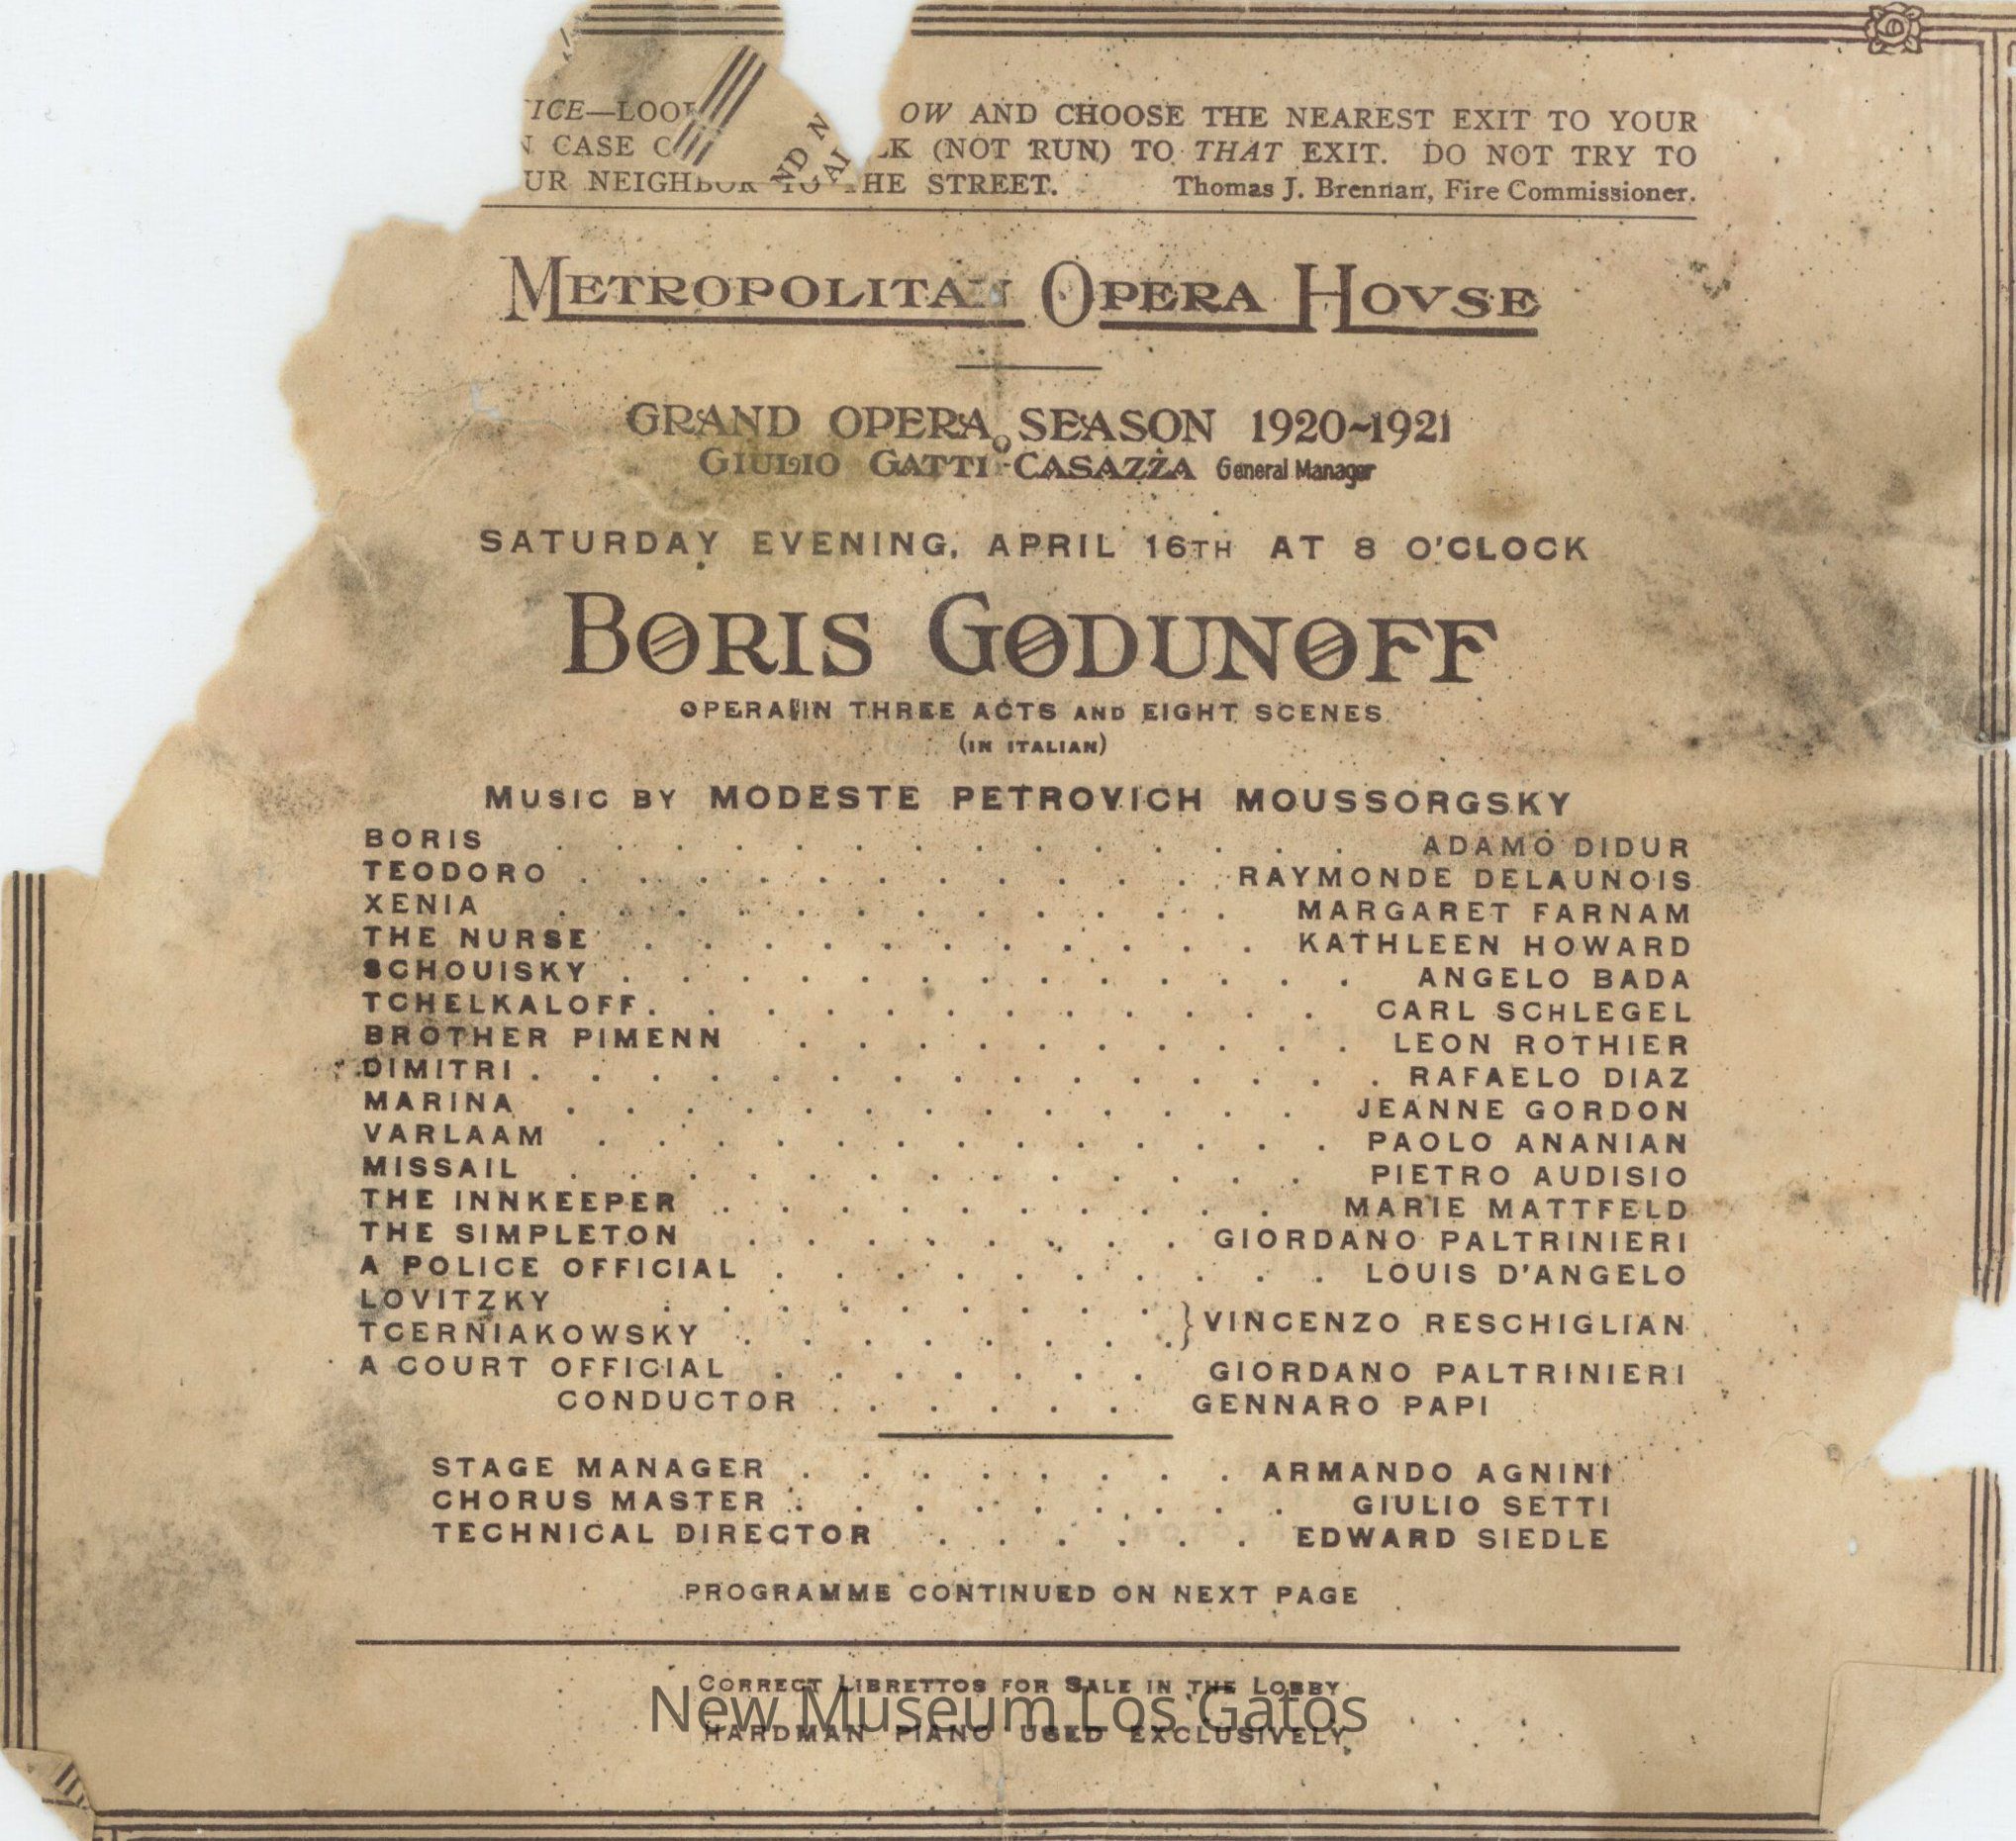 ICE—LOO OW AND CHOOSE THE NEAREST EXIT TO YOUR
CASE (NOT RUN) TO THAT EXIT. DO NOT TRY TO
UR NEIGHBOR TO THE STREET. Thomas J. Brennan, Fire Commissioner.
METROPOLITAN OPERA HOVSE
GRAND OPERA SEASON 1920-1921
GIULIO GATTI-CASAZZA General Manager
SATURDAY EVENING, APRIL 16TH AT 8 O'CLOCK
BORIS GODUNOFF
OPERA IN THREE ACTS AND EIGHT SCENES
(IN ITALIAN)
MUSIC BY MODESTE PETROVICH MOUSSORGSKY
BORIS . . . . . . . . . . . . . . ADAMO DIDUR
TEODORO . . . . . . . . . . . RAYMONDE DELAUNOIS
XENIA . . . . . . . . . . . . MARGARET FARNAM
THE NURSE . . . . . . . . . . . KATHLEEN HOWARD
SCHOUISKY . . . . . . . . . . . . . ANGELO BADA
TCHELKALOFF . . . . . . . . . . . . CARL SCHLEGEL
BROTHER PIMENN . . . . . . . . . . LEON ROTHIER
DIMITRI . . . . . . . . . . . . . . . RAFAELO DIAZ
MARINA . . . . . . . . . . . . . JEANNE GORDON
VARLAAM . . . . . . . . . . . . . PAOLO ANANIAN
MISSAIL . . . . . . . . . . . . . PIETRO AUDISIO
THE INNKEEPER . . . . . . . . . . MARIE MATTFELD
THE SIMPLETON . . . . . . . . GIORDANO PALTRINIERI
A POLICE OFFICIAL . . . . . . . . . . LOUIS D'ANGELO
LOVITZKY . . . . . . . . .
TCERNIAKOWSKY . . . . . . . . } VINCENZO RESCHIGLIAN
A COURT OFFICIAL . . . . . . . GIORDANO PALTRINIERI
CONDUCTOR . . . . . . GENNARO PAPI
STAGE MANAGER . . . . . . . . ARMANDO AGNINI
CHORUS MASTER . . . . . . . . . GIULIO SETTI
TECHNICAL DIRECTOR . . . . . . EDWARD SIEDLE
PROGRAMME CONTINUED ON NEXT PAGE
CORRECT LIBRETTOS FOR SALE IN THE LOBBY
New Museum Los Gatos
HARDMAN PIANO USED EXCLUSIVELY